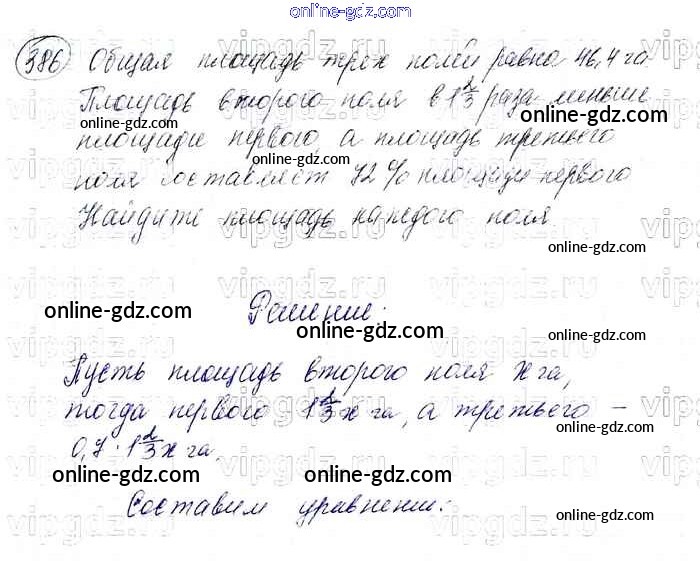 online-gdz.com
386 Общая площадь трёх полей равна 46,4 га
Площадь второго поля в 1 2/3 раза меньше
площади первого, а площадь третьего
online-gdz.com
поля составляет 72 % площади первого
Найдите площадь каждого поля
online-gdz.com
vipgdz.ru
online-gdz.com
Решение.
online-gdz.com
Пусть площадь второго поля x га,
тогда первого 1 2/3 x га, а третьего –
online-gdz.com
0,7 · 1 2/3 x га.
online-gdz.com
Составим уравнение:
online-gdz.com